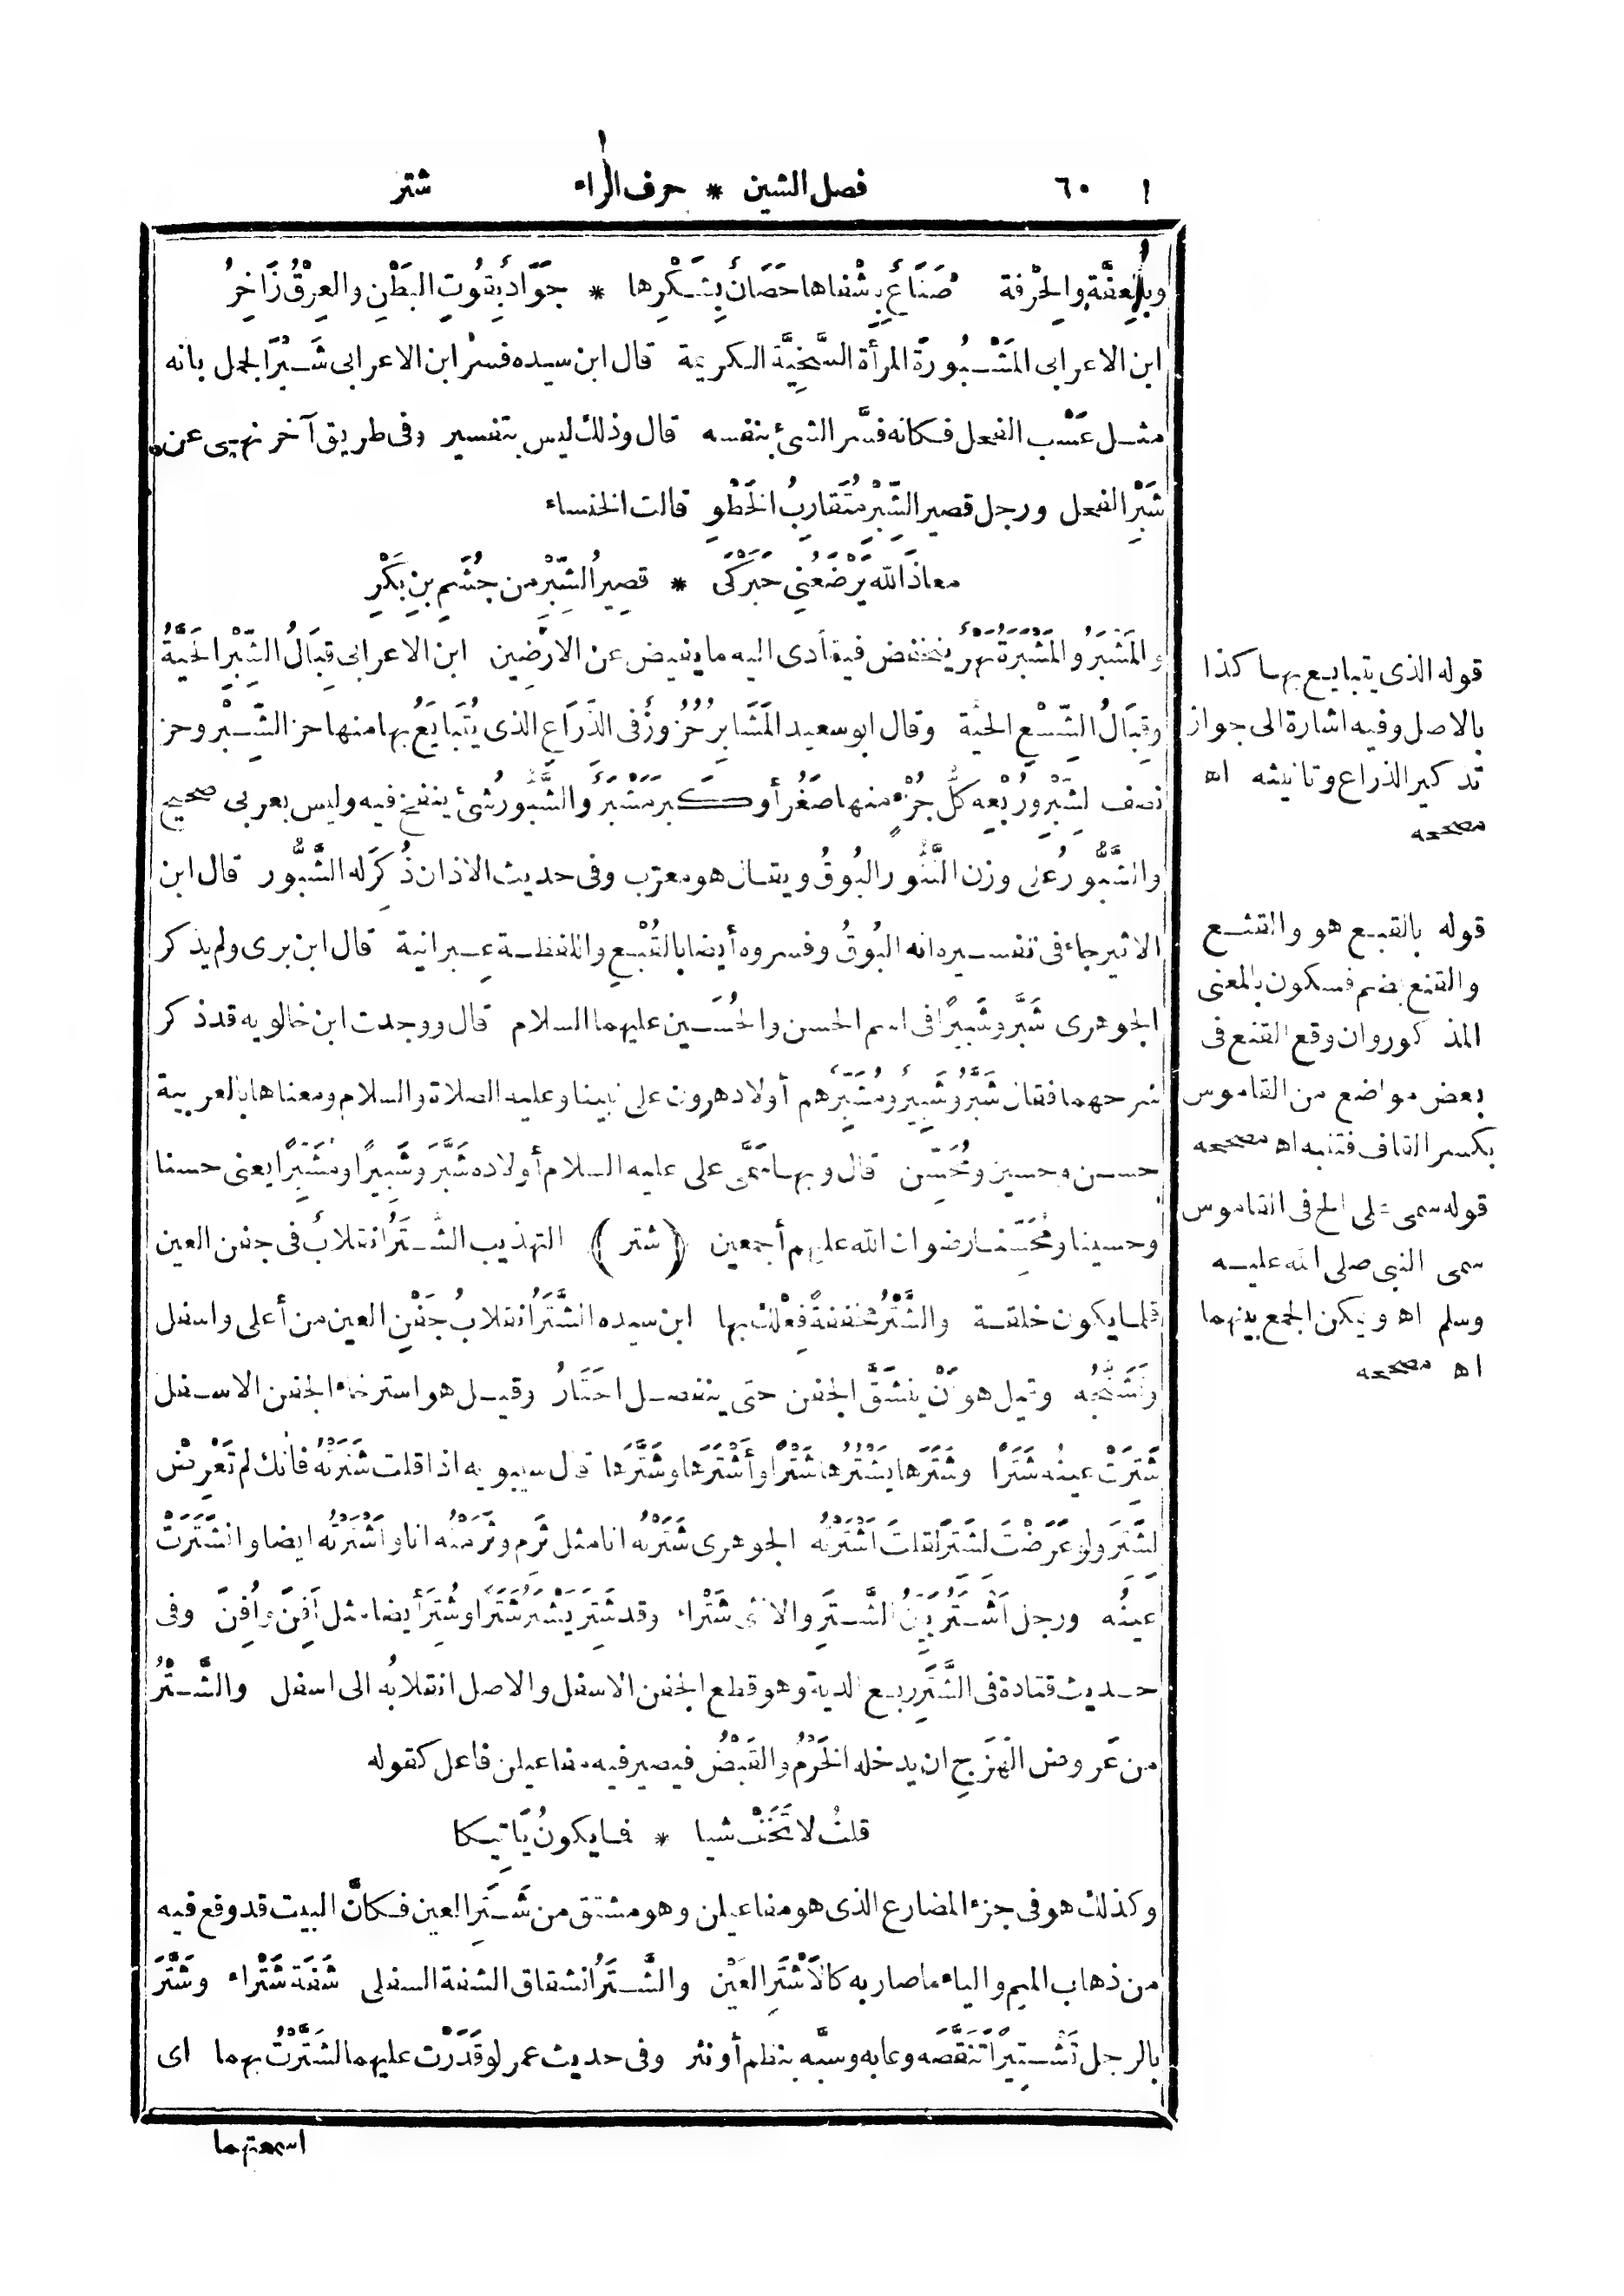 ٦٠ فصل الشين * حرف الراء شتر
وبالعفة والحرفة صَنَاعٌ بِإشْفَاها حَصَانٌ بِشَكْرِها * جَوَادٌ بِقُوتِ البَطْنِ والعِرْقُ زَاخِرُ
ابن الاعرابى المَشْبُورَةُ المرأة السَّخِيَّة الكريمة قال ابن سيده فسر ابن الاعرابى شَبْرَ الجمل بانه
مثل عَسْب الفحل فكانه فسَّر الشئ بنفسه قال وذلك ليس بتفسير وفى طريق آخر نهى عن
شَبْرِ الفحل ورجل قصير الشِّبْرِ مُتَقارِبُ الخَطْوِ قالت الخنساء
معاذَ اللّه يَرْضَعُنِى حَبَرْكَى * قصيرُ الشِّبْرِ من جُشَمِ بنِ بَكْرِ
والمَشْبَرُ والمَشْبَرَةُ نهر ينخفض فيتأدى اليه ما يفيض عن الارَضِين ابن الاعرابى قِبَالُ الشِّبْرِ الحَيَّةُ
وقِبَالُ الشِّسْعِ الحية وقال ابو سعيد المَشَابِرُ حُزُوزٌ فى الذِّرَاعِ الذى يُتَبَايَعُ بها منها حز الشِّبْر وحز
نصف الشِّبْرِ ورُبْعِه كلُّ جُزْءٍ منها صَغُر أو كبر مَشْبَرٌ والشَّبُّورُ شئ ينفخ فيه وليس بعربى صحيح
والشَّبُّورُ على وزن التَّنُّور البُوقُ ويقال هو معرّب وفى حديث الاذان ذُكِرَ له الشَّبُّور قال ابن
الاثير جاء فى تفسيره انه البُوقُ وفسروه أيضا بالقُبْعِ واللفظة عِبرانية قال ابن برى ولم يذكر
الجوهرى شَبَّر وشَبِيرًا فى اسم الحسن والحُسَين عليهما السلام قال ووجدت ابن خالويه قد ذكر
شرحهما فقال شَبَّرُ وشَبِيرُ ومُشَبِّرُ هم أولاد هرون على نبينا وعليه الصلاة والسلام ومعناها بالعربية
حسن وحسين ومُحَسِّن قال وبها سَمَّى على عليه السلام أولاده شَبَّرَ وشَبِيرًا ومُشَبِّرًا يعنى حسنا
وحسينا ومُحَسِّنا رضوان اللّه عليهم أجمعين (شتر) التهذيب الشَّتَرُ انقلابٌ فى جفن العين
قلما يكون خلقة والشَّتْرُ مخففةً فِعْلُك بها ابن سيده الشَّتَرُ انقلابُ جَفْنِ العين من أعلى واسفل
وتَشَنُّجُه وقيل هو أنْ ينشَقَّ الجفن حتى ينفصل الحَتَارُ وقيل هو استرخاء الجفن الاسفل
شَتِرَتْ عينُه شَتَرًا وشَتَرَها يَشْتُرُها شَتْرًا وأَشْتَرَها وشَتَّرَها قال سيبويه اذا قلت شَتَرْتُه فانك لم تَعْرِضْ
لشَتِرَ ولو عَرَضْتَ لشَتِرَ لقلتَ أَشْتَرْتُه الجوهرى شَتَرْتُه انا مثل ثَرِمَ وثَرَمْتُه انا وأَشْتَرْتُه ايضا وانْشَتَرَتْ
عينُه ورجل أَشْتَرُ بَيِّنُ الشَّتَرِ والانثى شَتْراء وقد شَتِرَ يَشْتَرُ شَتَرًا وشُتِرَ أيضا مثل أَفِنَ وأُفِنَ وفى
حديث قتادة فى الشَّتَرِ ربع الدية وهو قطع الجفن الاسفل والاصل انقلابُه الى اسفل والشَّتْرُ
من عَروض الهَزَجِ ان يدخله الخَرْمُ والقَبْضُ فيصير فيه مفاعيلن فاعل كقوله
قلتُ لا تَخَفْ شيا * فما يكونُ يَاتِيكا
وكذلك هو فى جزء المضارع الذى هو مفاعيلن وهو مشتق من شَتَرِ العين فكانَّ البيت قد وقع فيه
من ذهاب الميم والياء ما صار به كالأَشْتَرِ العَيْن والشَّتَرُ انشقاق الشفة السفلى شَفَة شَتْراء وشَتَّرَ
بالرجل تَشْتِيرًا تَنَقَّصَه وعابه وسبَّه بنظم أو نثر وفى حديث عمر لو قَدَرْت عليهما لشَتَّرْتُ بهما اى
اسمعتهما
قوله الذى يتبايع بها كذا
بالاصل وفيه اشارة الى جواز
تذكير الذراع وتانيثه اه
مصححه
قوله بالقبع هو والقثع
والقنع بضم فسكون بالمعنى
المذكور وان وقع القنع فى
بعض مواضع من القاموس
بكسر القاف فتنبه اه مصححه
قوله سمى على الخ فى القاموس
سمى النبى صلى اللّه عليه
وسلم اه ويمكن الجمع بينهما
اه مصححه